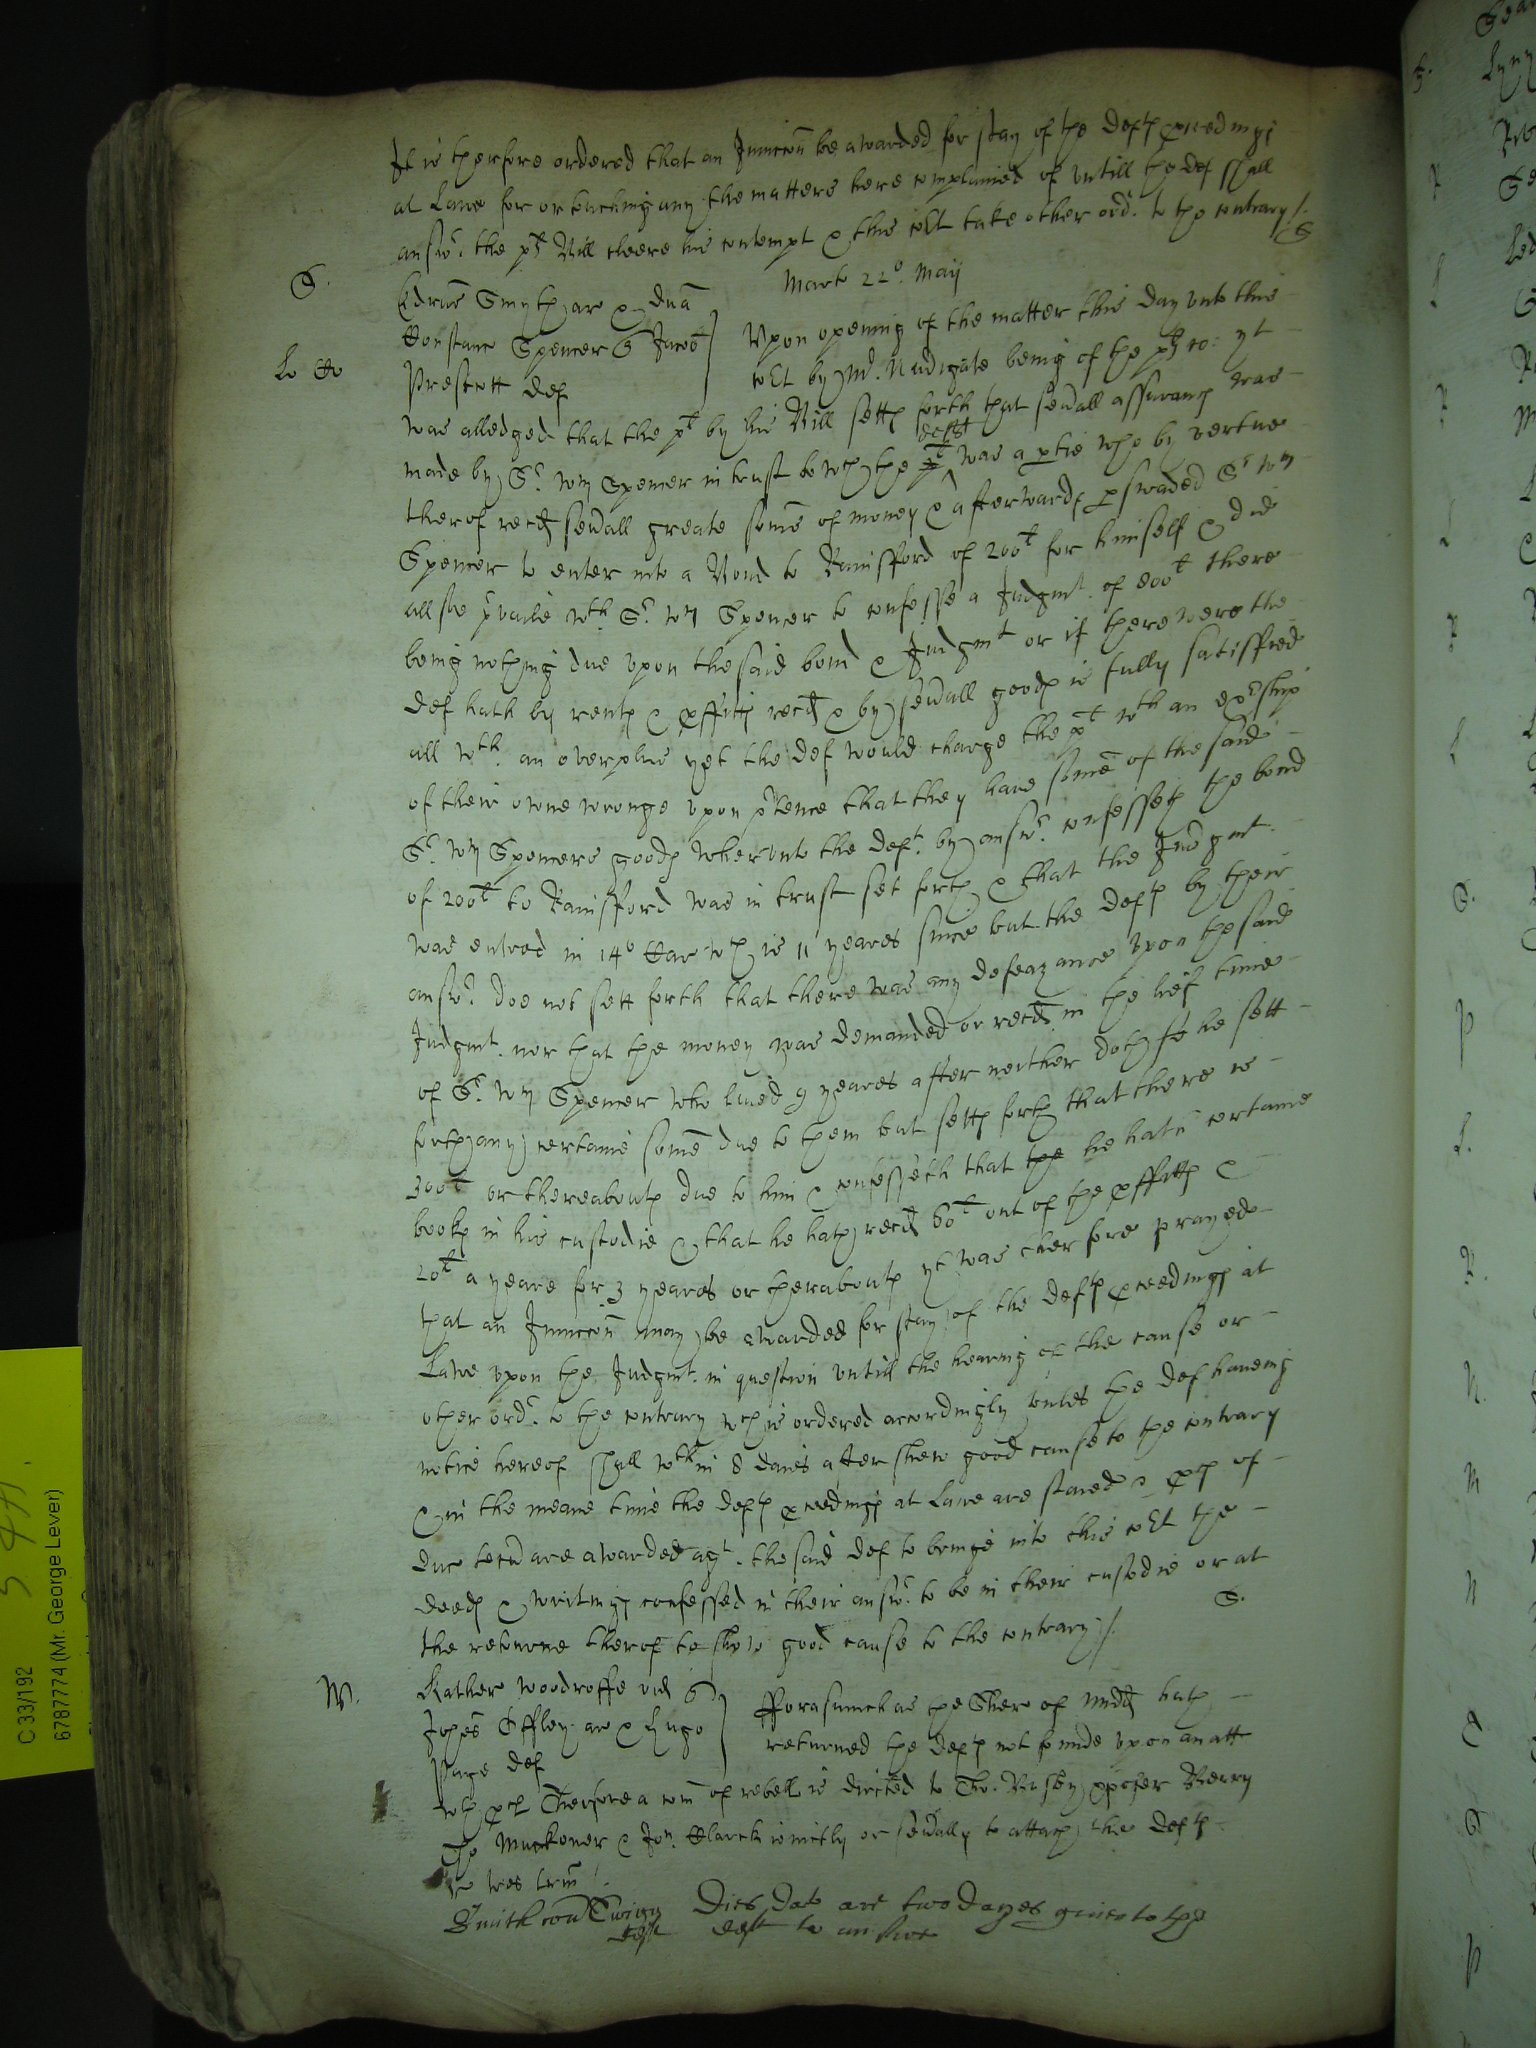 It is therfore ordered that an Iniuccon be awarded for stay of the defts pceedings
at Lawe for or touching any the matters here complained of vntill the def shall
answ. the plt Bill cleere his contempt & this cort take other ord. to the contrary /.
S
Marti 22o. Maij
S.
Edrus Smyth ar &
Constanc Spencer S Jacob
Prescott def
Lo Co
Vpon opening of the matter this day vnto this
cort by Mr. Nudigate being of the plts co: yt
was alledged that the plt by his Bill setts forth that seuall assurancs was
made by Sr. Wm Spencer in trust to wch the deft was a ptie who by vertue
therof recd seuall greate somes of money & afterwards pswaded Sr Wm
Spencer to enter into a Bond to Rainsford of 200l for himself & did
allsoe pvaile wth. Sr. Wm Spencer to confesse a Judgmt. of 800l there
being nothing due vpon the said bond & Judgmt or if there were the
def hath by rents & pffitts recd & by seuall goods is fully satisfied
all wth. an overplus yet the def would charge the plt wth an exrship
of their owne wronge vpon ptence that they have some of the said
Sr. Wm Spencers goods wherunto the deft. by answ. confesseth the bond
of 200l to Rainsford was in trust set forth & that the Judgmt.
was entred in 14o Car wch is 11 yeares since but the defts by their
answ. doe not sett forth that there was any defeazance vpon the said
Judgmt. nor that the money was demanded or recd in the lief time
of Sr. Wm Spencer who lived 9 yeares after neither doth he sett
forth any certaine some due to them but setts forth that there is
300l or thereabouts due to him & confesseth that the he hath certaine
books in his custodie & that he hath recd 60l out of the pffitts &
20l a yeare for 3 yeares or therabouts yt was therfore prayed
that an Iniuccon may be awarded for stay of the defts pceedings at
Lawe vpon the Judgmt. in question vntill the hearing of the cause or
other ord. to the contrary wch is ordered accordingly vnles the def haveing
notice hereof shall wthin 8 daies after shew good cause to the contrary
& in the meane time the defts pceedings at Lawe are staied & pcs of
duc tecu are awarded agt. the said def to bringe into this cort the
deeds & writings confessed in their answ. to be in their custodie or at
the returne therof to shew good cause to the contrary /.
S.
W.
Kather Woodroffe vid S
Johes Offley ar & Hugo
Page def
fforasmuch as the Sher of Midd hath
returned the defts not founde vpon an att
wth pcl Therfore a com of rebell is directed to Tho: Busby Berry
Tho Muckover & Jon. Clarck ioinctly or seually to attach the defts
Smith con Twigg
deft
Dies dat are two dayes given to the
deft to answer
C 33/192
6787774 (Mr. George Lever)